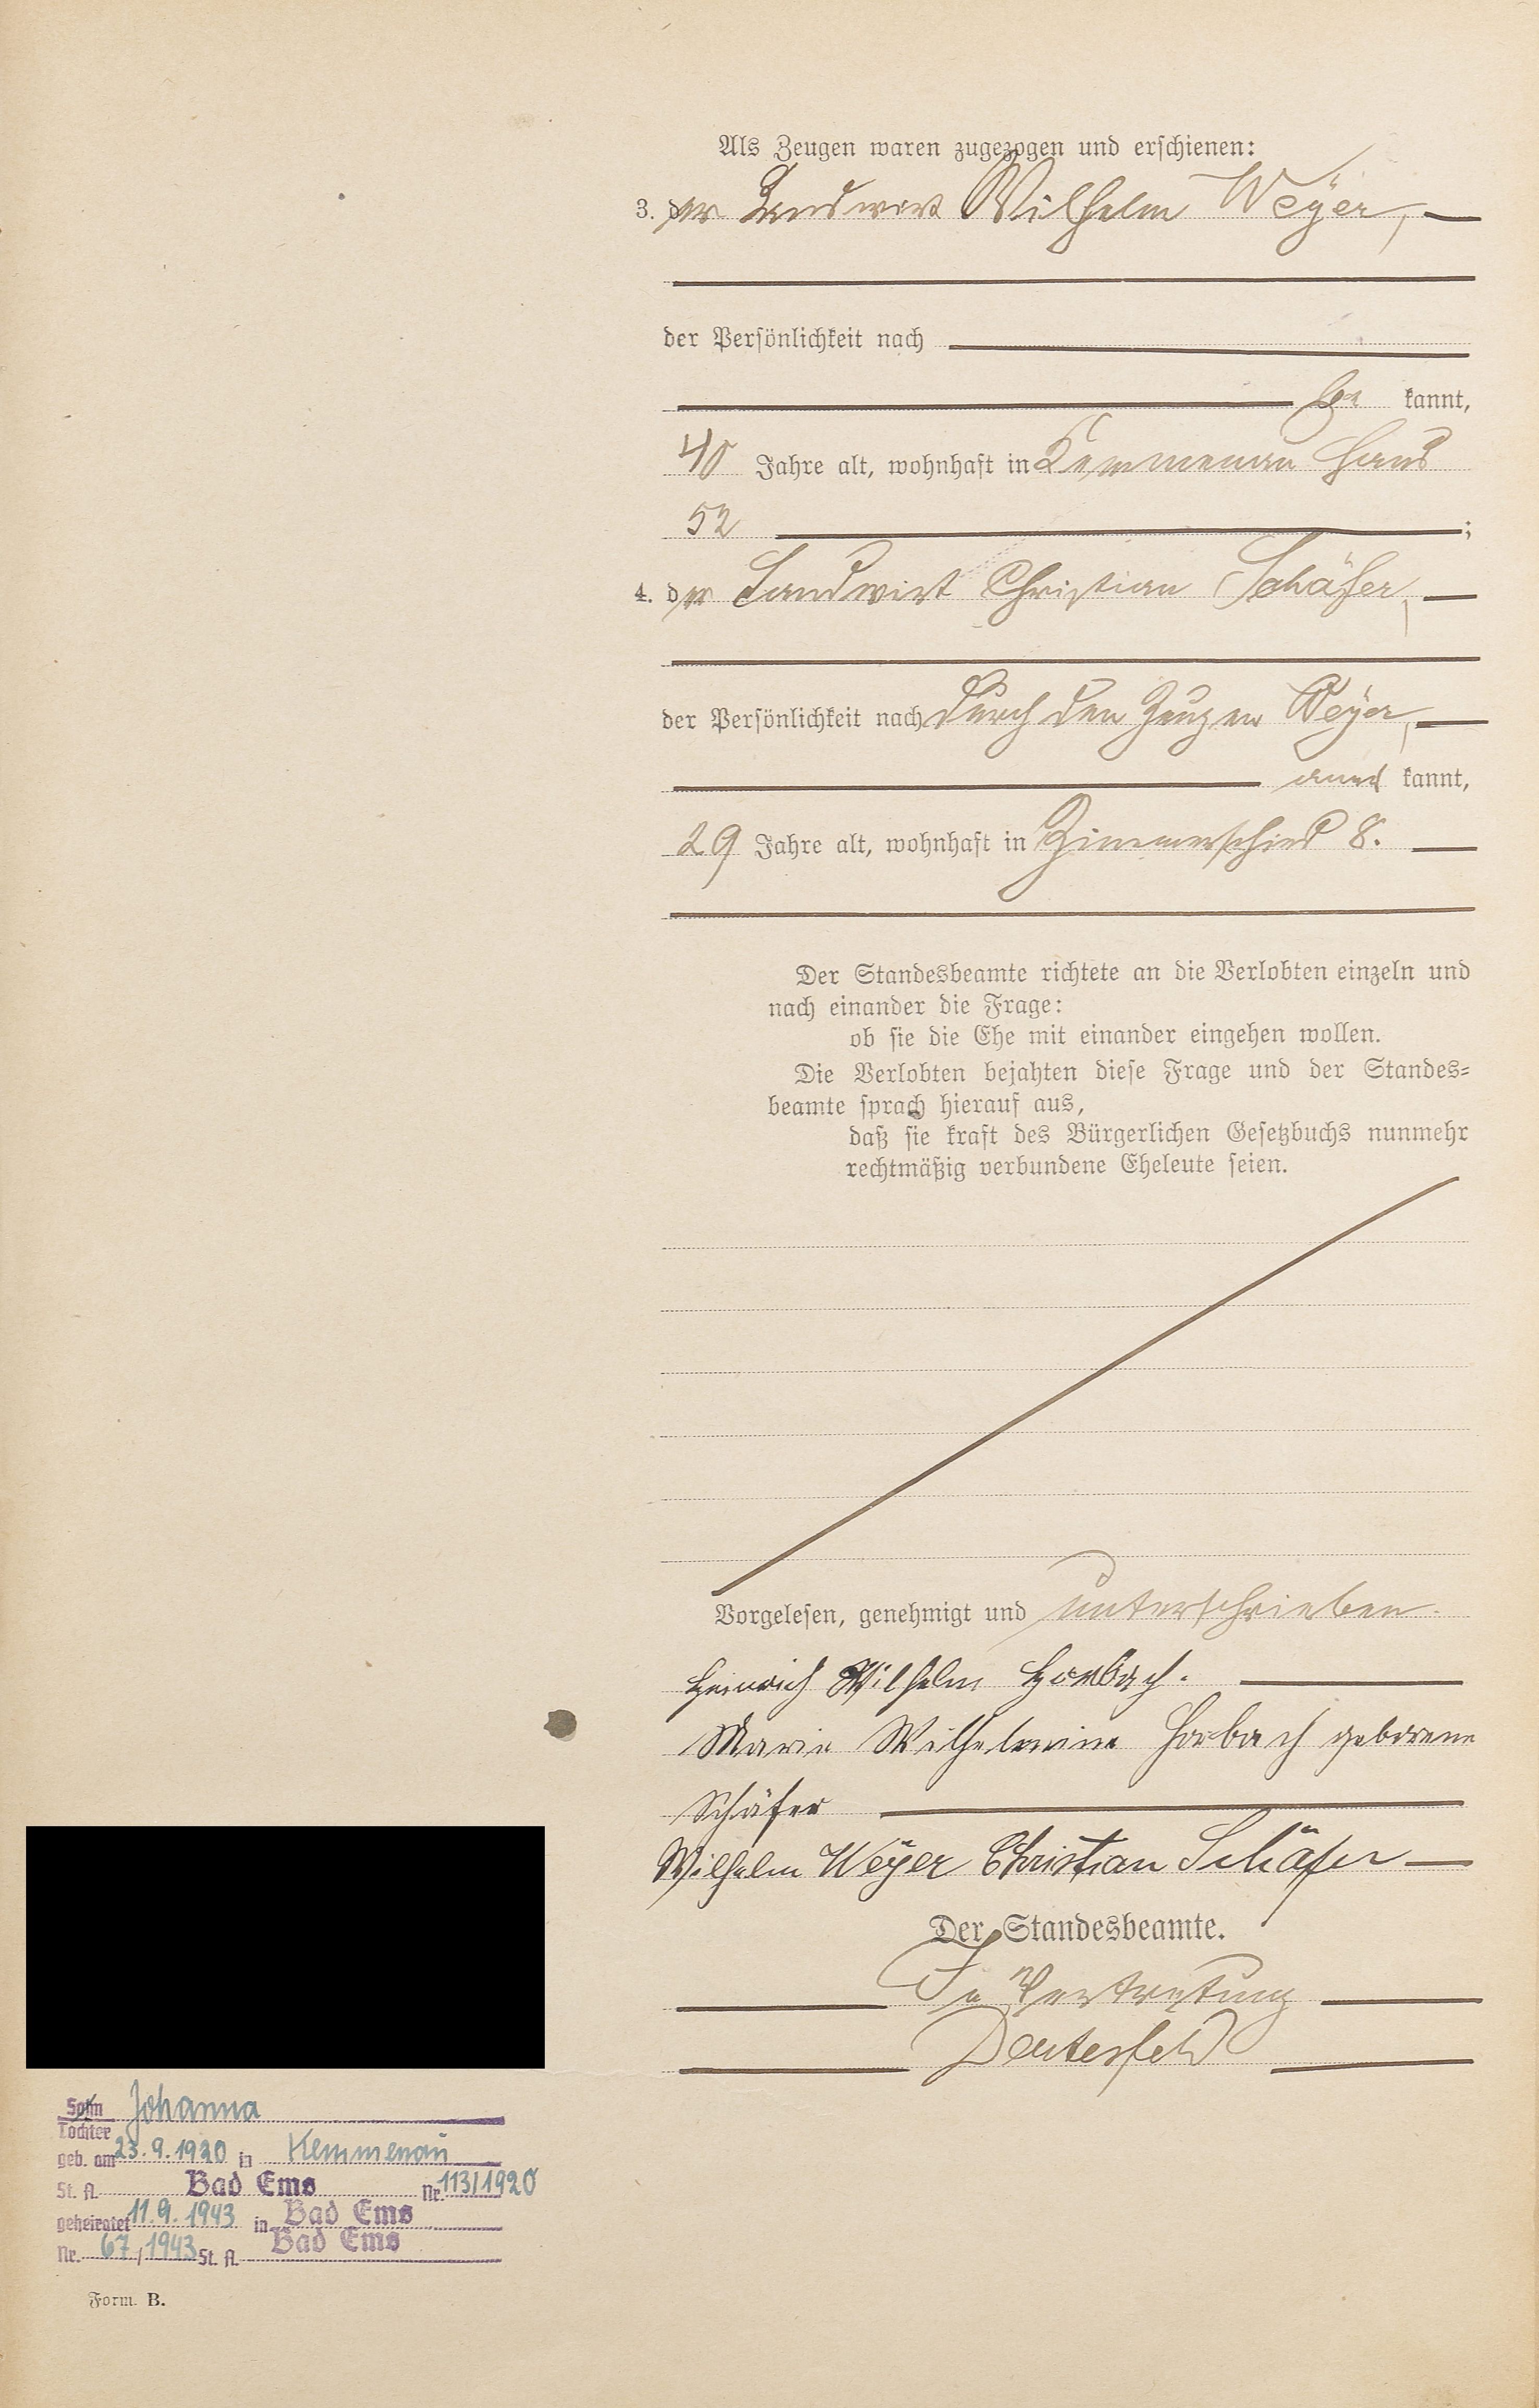 Als Zeugen waren zugezogen und erschienen:
3. der Landwirt Wilhelm Weÿer,
der Persönlichkeit nach
be kannt,
40 Jahre alt, wohnhaft in Kemmenau Haus
52 ;
4. der Landwirt Christian Schäfer,
der Persönlichkeit nach durch den Zeugen Weÿer,
aner kannt,
29 Jahre alt, wohnhaft in Zimmerschied 8.
Der Standesbeamte richtete an die Verlobten einzeln und
nach einander die Frage:
ob sie die Ehe mit einander eingehen wollen.
Die Verlobten bejahten diese Frage und der Standes-
beamte sprach hierauf aus,
daß sie kraft des Bürgerlichen Gesetzbuchs nunmehr
rechtmäßig verbundene Eheleute seien.
Vorgelesen, genehmigt und unterschrieben.
Heinrich Wilhelm Horbach.
Marie Wilhelmine Horbach geborene
Schäfer
Wilhelm Weÿer Christian Schäfer
Der Standesbeamte.
In Vertretung
Deutesfeld
Sohn Johanna
Tochter
geb. am 23.9.1920 in Kemmenau
St. A. Bad Ems Nr. 113/1920
geheiratet 11.9.1943 in Bad Ems
Nr. 67/1943 St. A. Bad Ems
Form. B.